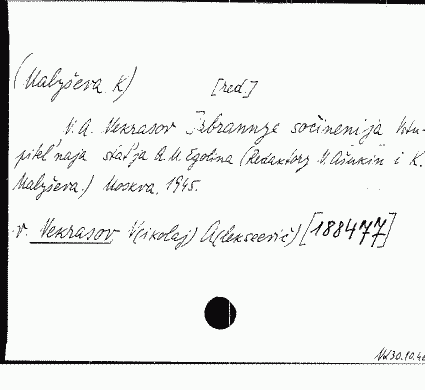 (Malyševa, K) [red.]
N. A. Nekrasov Izbrannye sočinenija Vstu-
pitel'naja stat'ja A. M. Egolina (Redaktory N. Ašukin i K.
Malyševa.) Moskva, 1945.
v. Nekrasov, N(ikolaj) A(lekseevič) [188477]
30.10.46